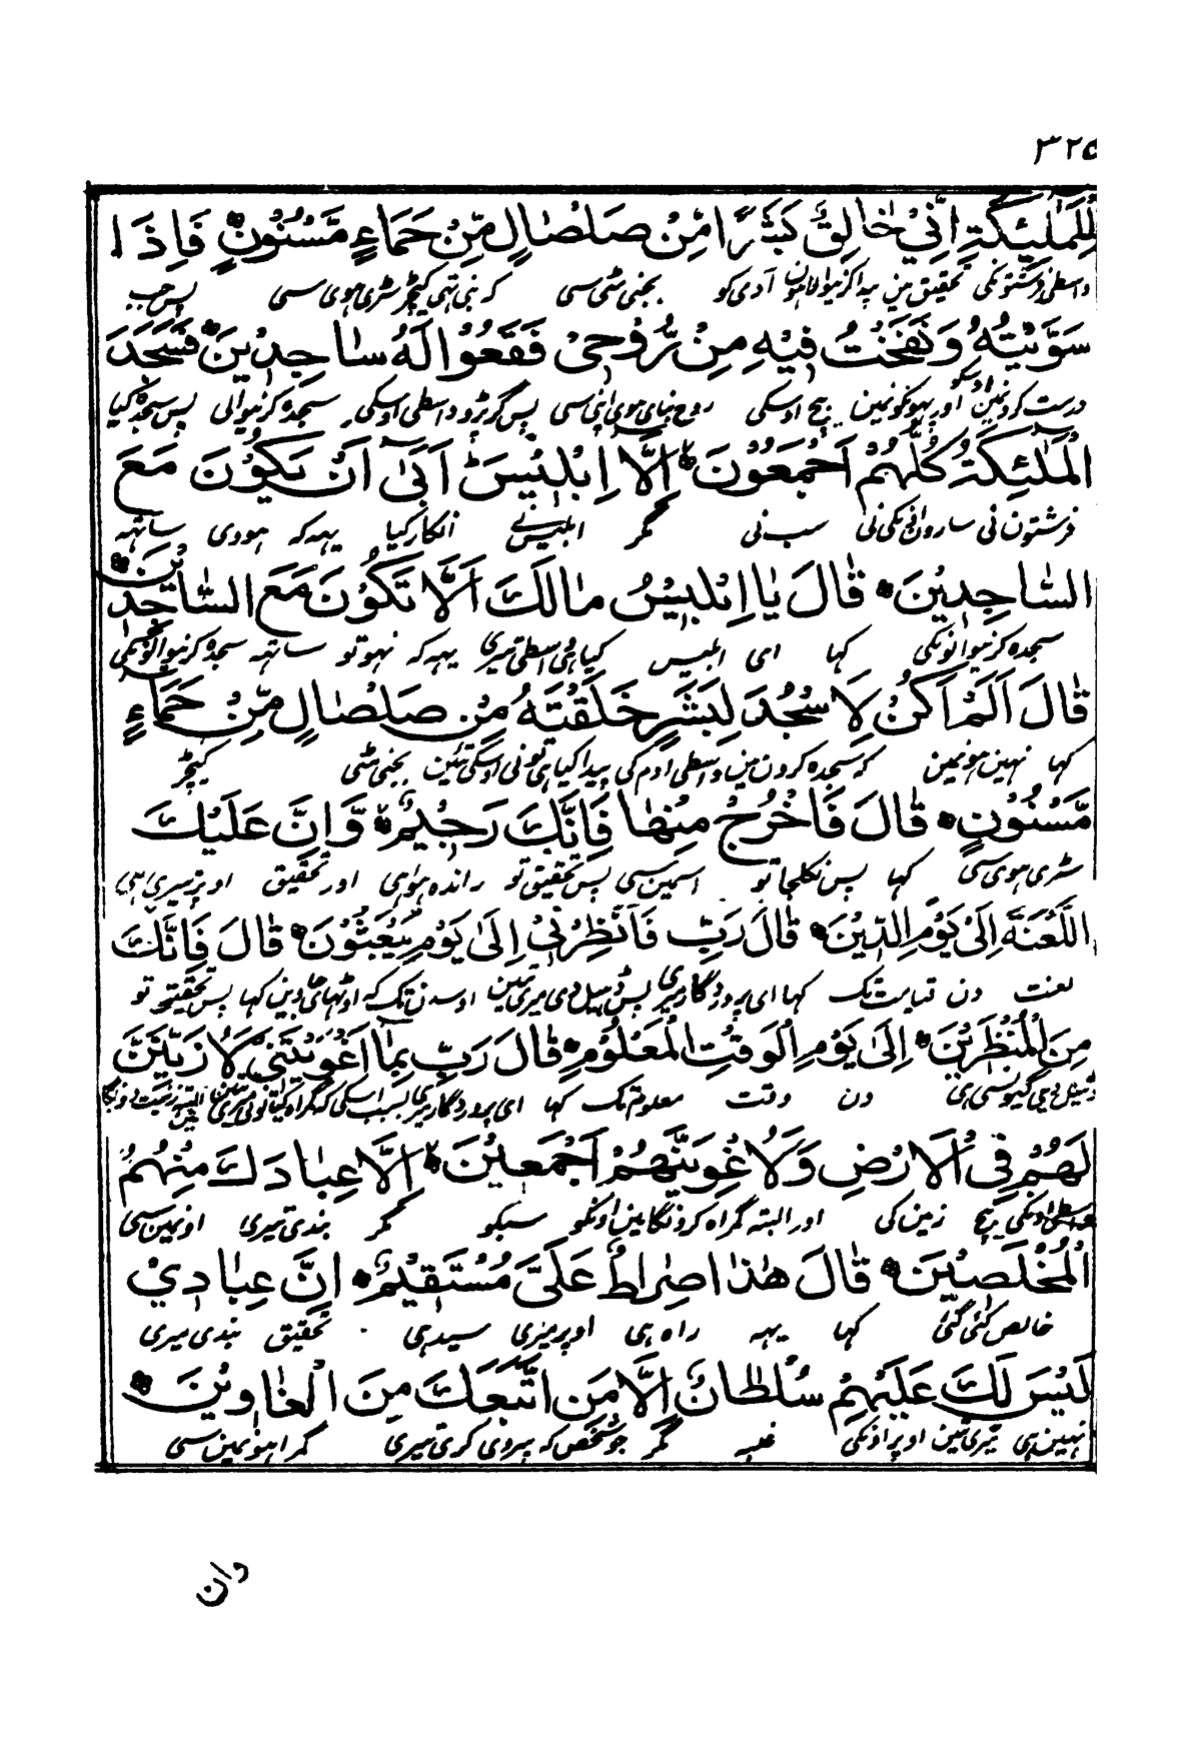 ٣٢٥
لِلْمَلٰٓئِكَةِ اِنِّيْ خَالِقٌ بَشَرًا مِّنْ صَلْصَالٍ مِّنْ حَمَاءٍ مَّسْنُوْنٍ فَاِذَا
واسطی فرشتونکی تحقیق مین پیدا کرنیوالا ہون آدمی کو بجنی مٹی سی کہ بنی تہی کیچڑ سڑی ہوی سی پس جب
سَوَّيْتُهٗ وَنَفَخْتُ فِيْهِ مِنْ رُّوْحِيْ فَقَعُوْا لَهٗ سَاجِدِيْنَ فَسَجَدَ
درست کرونمین اوسکو اور پہونکونمین بیچ اوسکی روح بنای ہوی اپنی سی پس گر پڑو واسطی اوسکی سجدہ کرنیوالی پس سجدہ کیا
الْمَلٰٓئِكَةُ كُلُّهُمْ اَجْمَعُوْنَ اِلَّا اِبْلِيْسَ اَبٰٓى اَنْ يَكُوْنَ مَعَ
فرشتون نی سارون نی سب نی مگر ابلیس نے انکار کیا یہہ کہ ہووی ساتہہ
السَّاجِدِيْنَ قَالَ يَا اِبْلِيْسُ مَا لَكَ اَلَّا تَكُوْنَ مَعَ السَّاجِدِيْنَ
سجدہ کرنیوالونکی کہا ای ابلیس کیا ہی واسطی تیری یہہ کہ نہو تو ساتہہ سجدہ کرنیوالونکی
قَالَ اَلَمْ اَكُنْ لِاَسْجُدَ لِبَشَرٍ خَلَقْتَهٗ مِنْ صَلْصَالٍ مِّنْ حَمَاءٍ
کہا نہین ہونمین کہ سجدہ کرون مین واسطی ادم کی پیدا کیا ہی تونی اوسکی تئین بجنی مٹی کیچڑ
مَّسْنُوْنٍ قَالَ فَاخْرُجْ مِنْهَا فَاِنَّكَ رَجِيْمٌ وَّاِنَّ عَلَيْكَ
سڑی ہوی سی کہا پس نکلجا تو اسمین سی پس تحقیق تو راندہ ہوا ہی اور تحقیق اوپر تیری ہی
اللَّعْنَةَ اِلٰى يَوْمِ الدِّيْنِ قَالَ رَبِّ فَاَنْظِرْنِيْ اِلٰى يَوْمِ يُبْعَثُوْنَ قَالَ فَاِنَّكَ
لعنت دن قیامت تک کہا ای پروردگار میری پس ڈہیل دی میری تئین اوس دن تک کہ اوٹہای جاوین کہا پس تحقیق تو
مِنَ الْمُنْظَرِيْنَ اِلٰى يَوْمِ الْوَقْتِ الْمَعْلُوْمِ قَالَ رَبِّ بِمَا اَغْوَيْتَنِيْ لَاُزَيِّنَنَّ
ڈہیل دی گیوسی ہی دن وقت معلوم تک کہا ای پروردگار میری بسبب اسکی کہ گمراہ کیا تونی میری تئین البتہ زینت دونگا
لَهُمْ فِي الْاَرْضِ وَلَاُغْوِيَنَّهُمْ اَجْمَعِيْنَ اِلَّا عِبَادَكَ مِنْهُمُ
واسطی اونکی بیچ زمین کی اور البتہ گمراہ کرونگا مین اونکو سبکو مگر بندی تیری اونمین سی
الْمُخْلَصِيْنَ قَالَ هٰذَا صِرَاطٌ عَلَيَّ مُسْتَقِيْمٌ اِنَّ عِبَادِيْ
خالص کئی گئی کہا یہہ راہ ہی اوپر میری سیدہی تحقیق بندی میری
لَيْسَ لَكَ عَلَيْهِمْ سُلْطَانٌ اِلَّا مَنِ اتَّبَعَكَ مِنَ الْغَاوِيْنَ
نہین ہی تیری تئین اوپر اونکی غلبہ مگر جو شخص کہ پیروی کری تیری گمراہونمین سی
وان